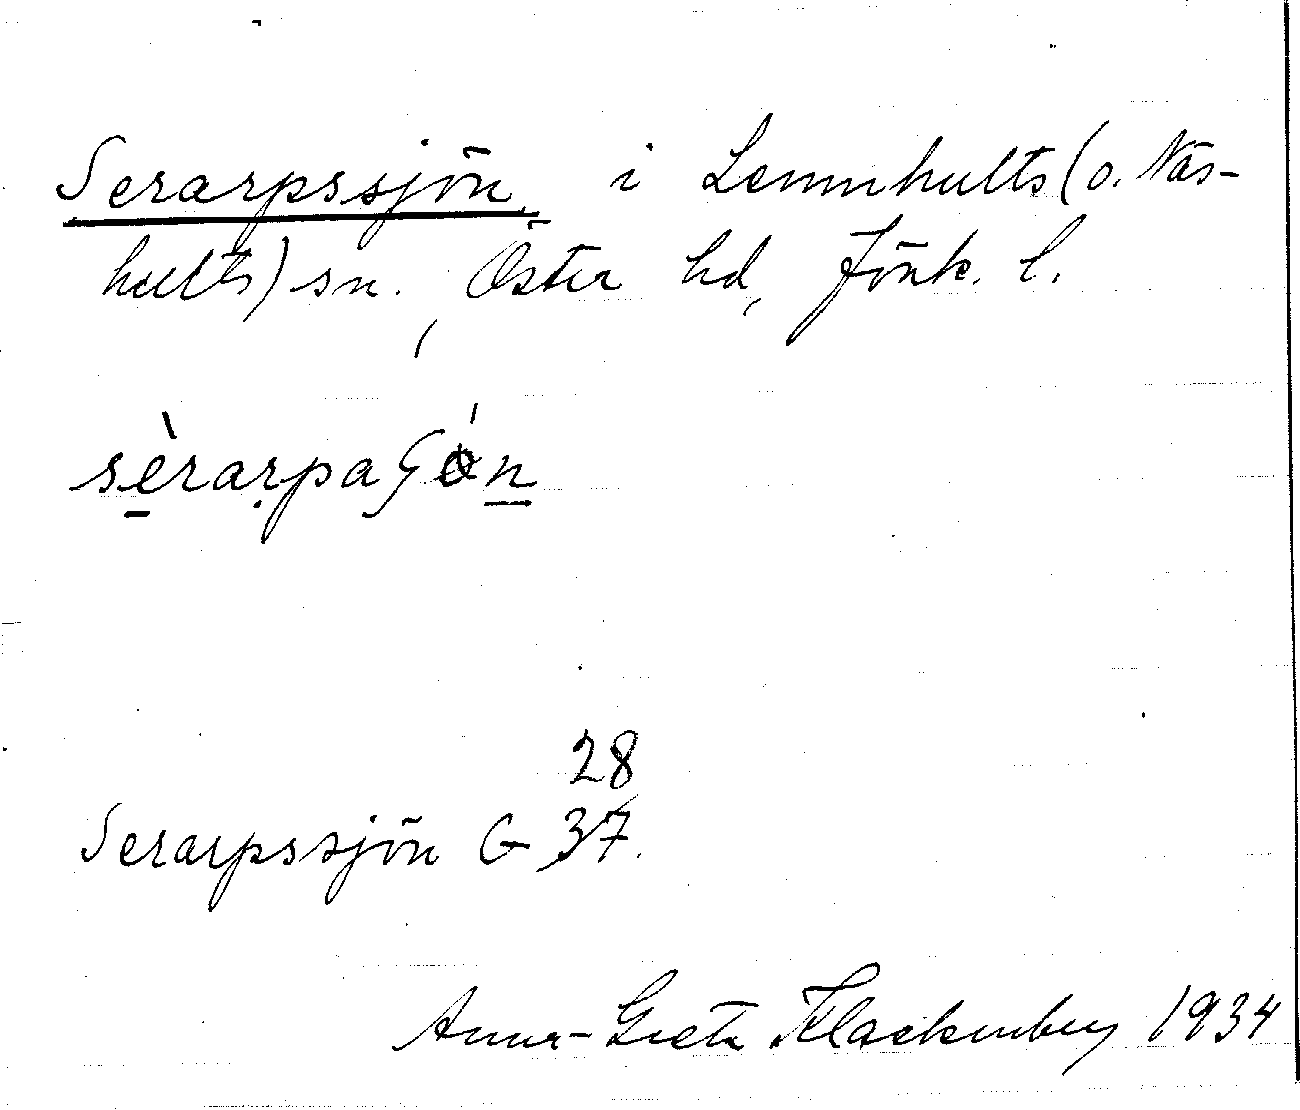 Serarpssjön, i Lemnhults (o. Näs-
hults) sn., Öster hd, Jönk. l.
sèrarpaʃǿn
28
Serarpssjön G 37.
Anna-Greta Klackenberg 1934